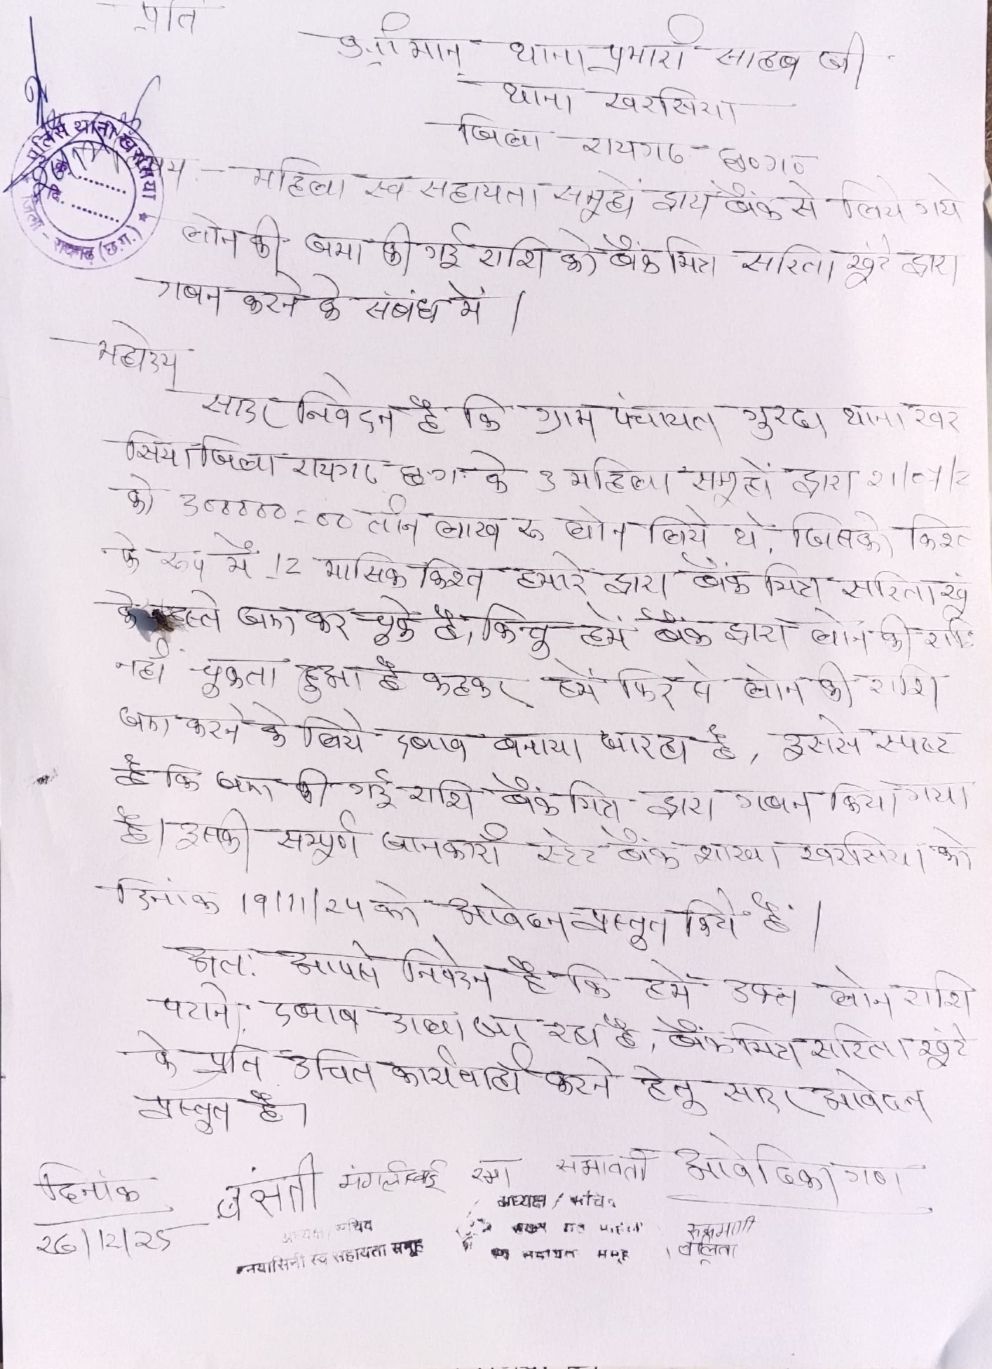 प्रति
श्रीमान् थाना प्रभारी साहब जी
थाना खरसिया
जिला - रायगढ़ - छ०ग०
पुलिस थाना खरसिया
जिला - रायगढ़ (छ.ग.)
विषय :- महिला स्व सहायता समूहों द्वारा बैंक से लिये गये
लोन की जमा की गई राशि को बैंक मित्र सरिता खूंटे द्वारा
गबन करने के संबंध में ।
महोदय
सादर निवेदन है कि ग्राम पंचायत गुरदा थाना खर
सिया जिला रायगढ़ छ.ग. के 3 महिला समूहों द्वारा
को 300000=00 तीन लाख रू लोन लिये थे, जिसको किश्त
के रूप में 12 मासिक किश्त हमारे द्वारा बैंक मित्र सरिता खूं
के हस्ते जमा कर चुके है, किन्तु हमें बैंक द्वारा लोन की राशि
नहीं चुकता हुआ है कहकर हमें फिर से लोन की राशि
जमा करने के लिये दबाव बनाया जा रहा है, इससे स्पष्ट
है कि जमा की गई राशि बैंक मित्र द्वारा गबन किया गया
है। इसकी सम्पूर्ण जानकारी स्टेट बैंक शाखा खरसिया को
दिनांक 19/11/24 को आवेदन प्रस्तुत किये हैं ।
अतः आपसे निवेदन है कि हमें उक्त लोन राशि
पटाने दबाव डाला जा रहा है, बैंक मित्र सरिता खूंटे
के प्रति उचित कार्यवाही करने हेतु सादर आवेदन
प्रस्तुत है।
दिनांक बसंती मंगलीबाई रमा समावती आवेदिका गण
26/12/25 अध्यक्ष / सचिव रूकमणी
अध्यक्ष / सचिव ललिता
स्व सहायता समूह समूह